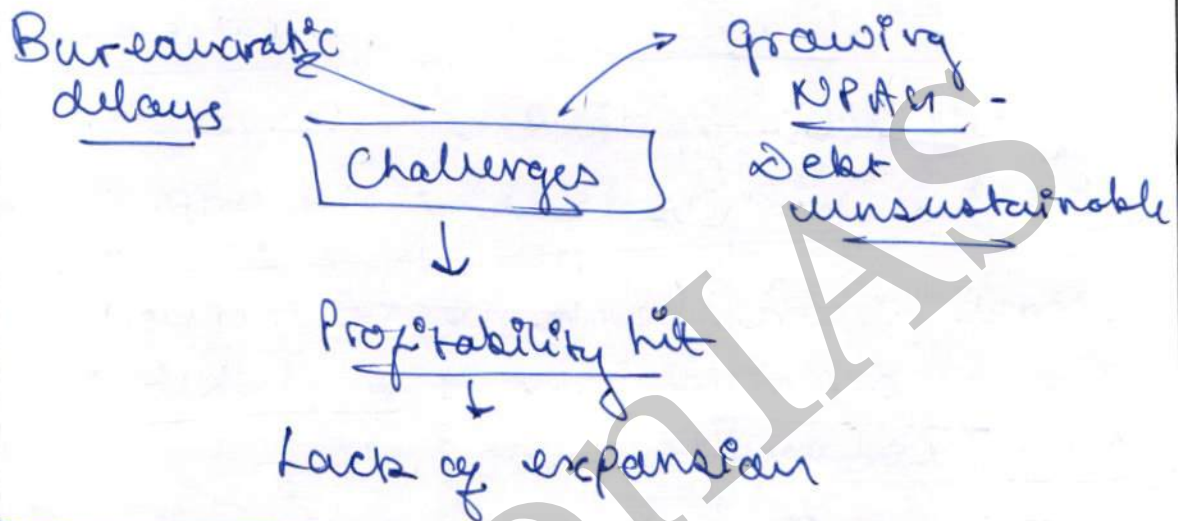 Bureaucratic
delays
Growing
NPAs -
Debt
unsustainable
Challenges
Profitability hit
Lack of expansion
nIAS